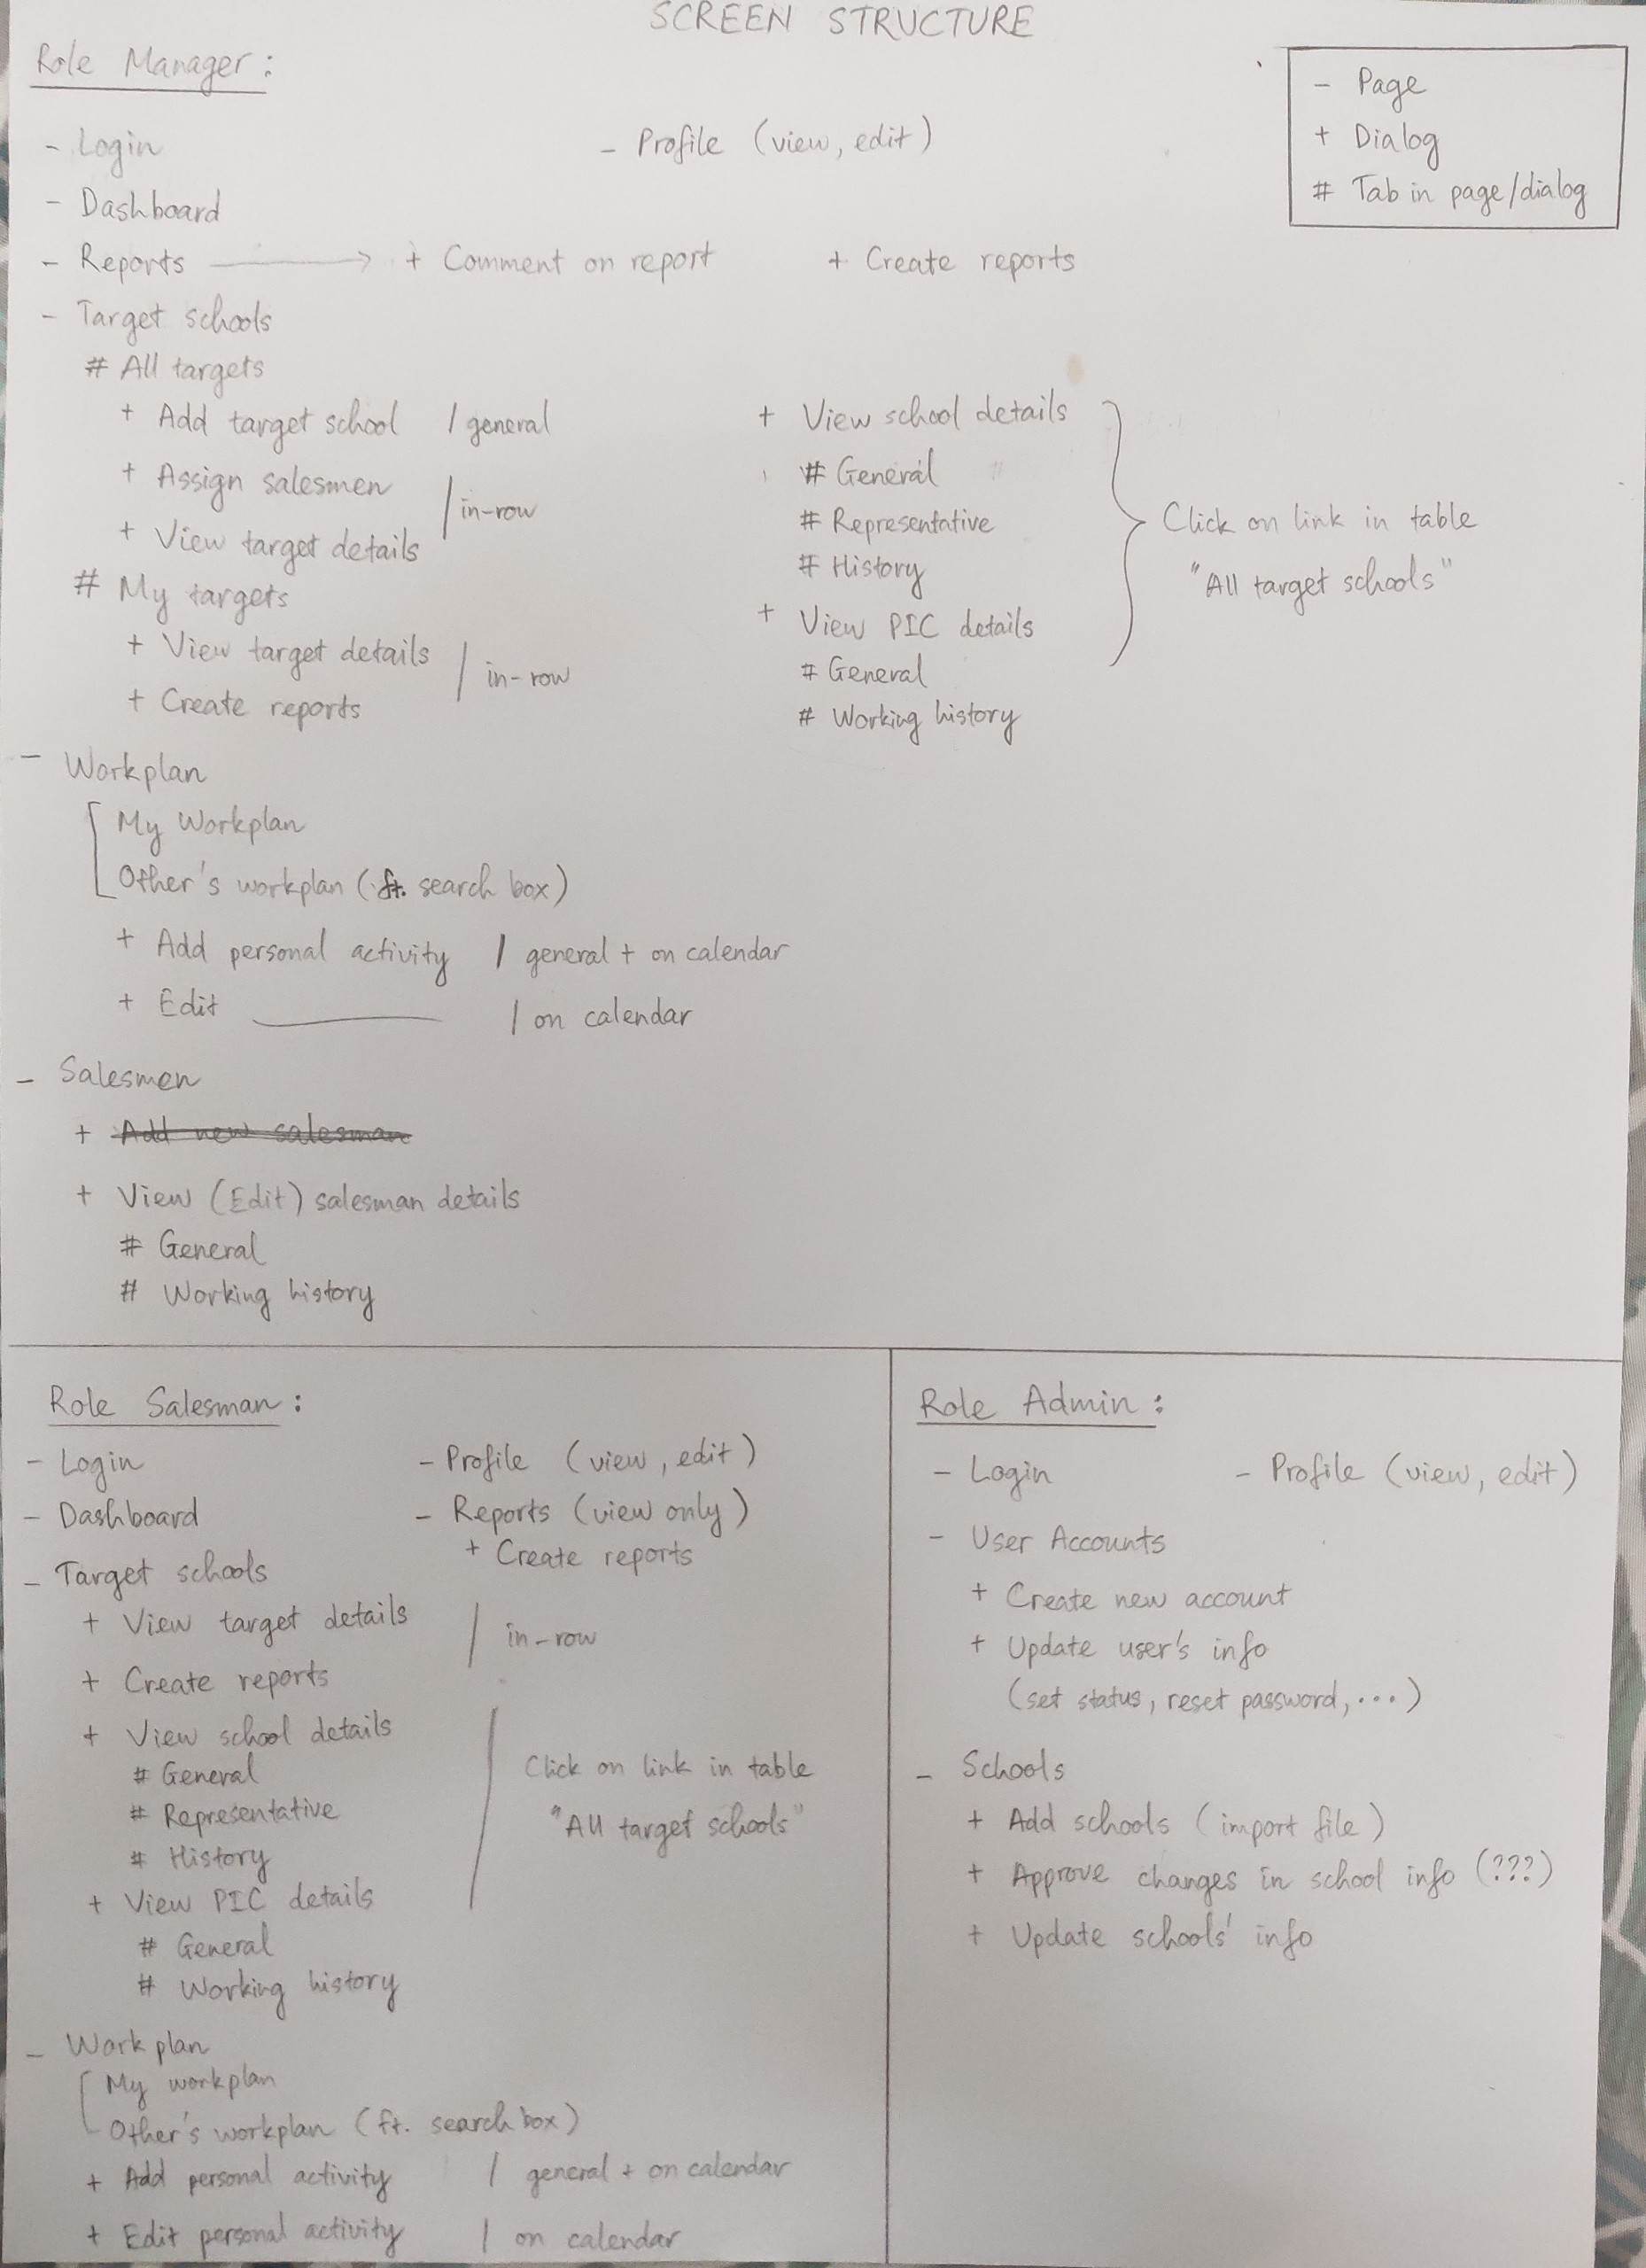 SCREEN STRUCTURE
- Page
+ Dialog
# Tab in page/dialog
Role Manager :
- Login
- Profile (view, edit)
- Dashboard
- Reports → + Comment on report + Create reports
- Target schools
# All targets
+ Add target school / general
+ Assign salesmen
+ View target details / in-row
# My targets
+ View target details
+ Create reports / in-row
+ View school details
# General
# Representative
# History
+ View PIC details
# General
# Working history
Click on link in table
"All target schools"
- Workplan
My Workplan
Other's workplan (ft. search box)
+ Add personal activity / general + on calendar
+ Edit ______ / on calendar
- Salesmen
+ Add new salesman
+ View (Edit) salesman details
# General
# Working history
Role Salesman :
- Login
- Dashboard
- Profile (view, edit)
- Reports (view only)
+ Create reports
- Target schools
+ View target details
+ Create reports / in-row
+ View school details
# General
# Representative
# History
+ View PIC details
# General
# Working history
Click on link in table
"All target schools"
- Workplan
My workplan
Other's workplan (ft. search box)
+ Add personal activity / general + on calendar
+ Edit personal activity / on calendar
Role Admin :
- Login
- Profile (view, edit)
- User Accounts
+ Create new account
+ Update user's info
(set status, reset password, ...)
- Schools
+ Add schools (import file)
+ Approve changes in school info (???)
+ Update schools' info